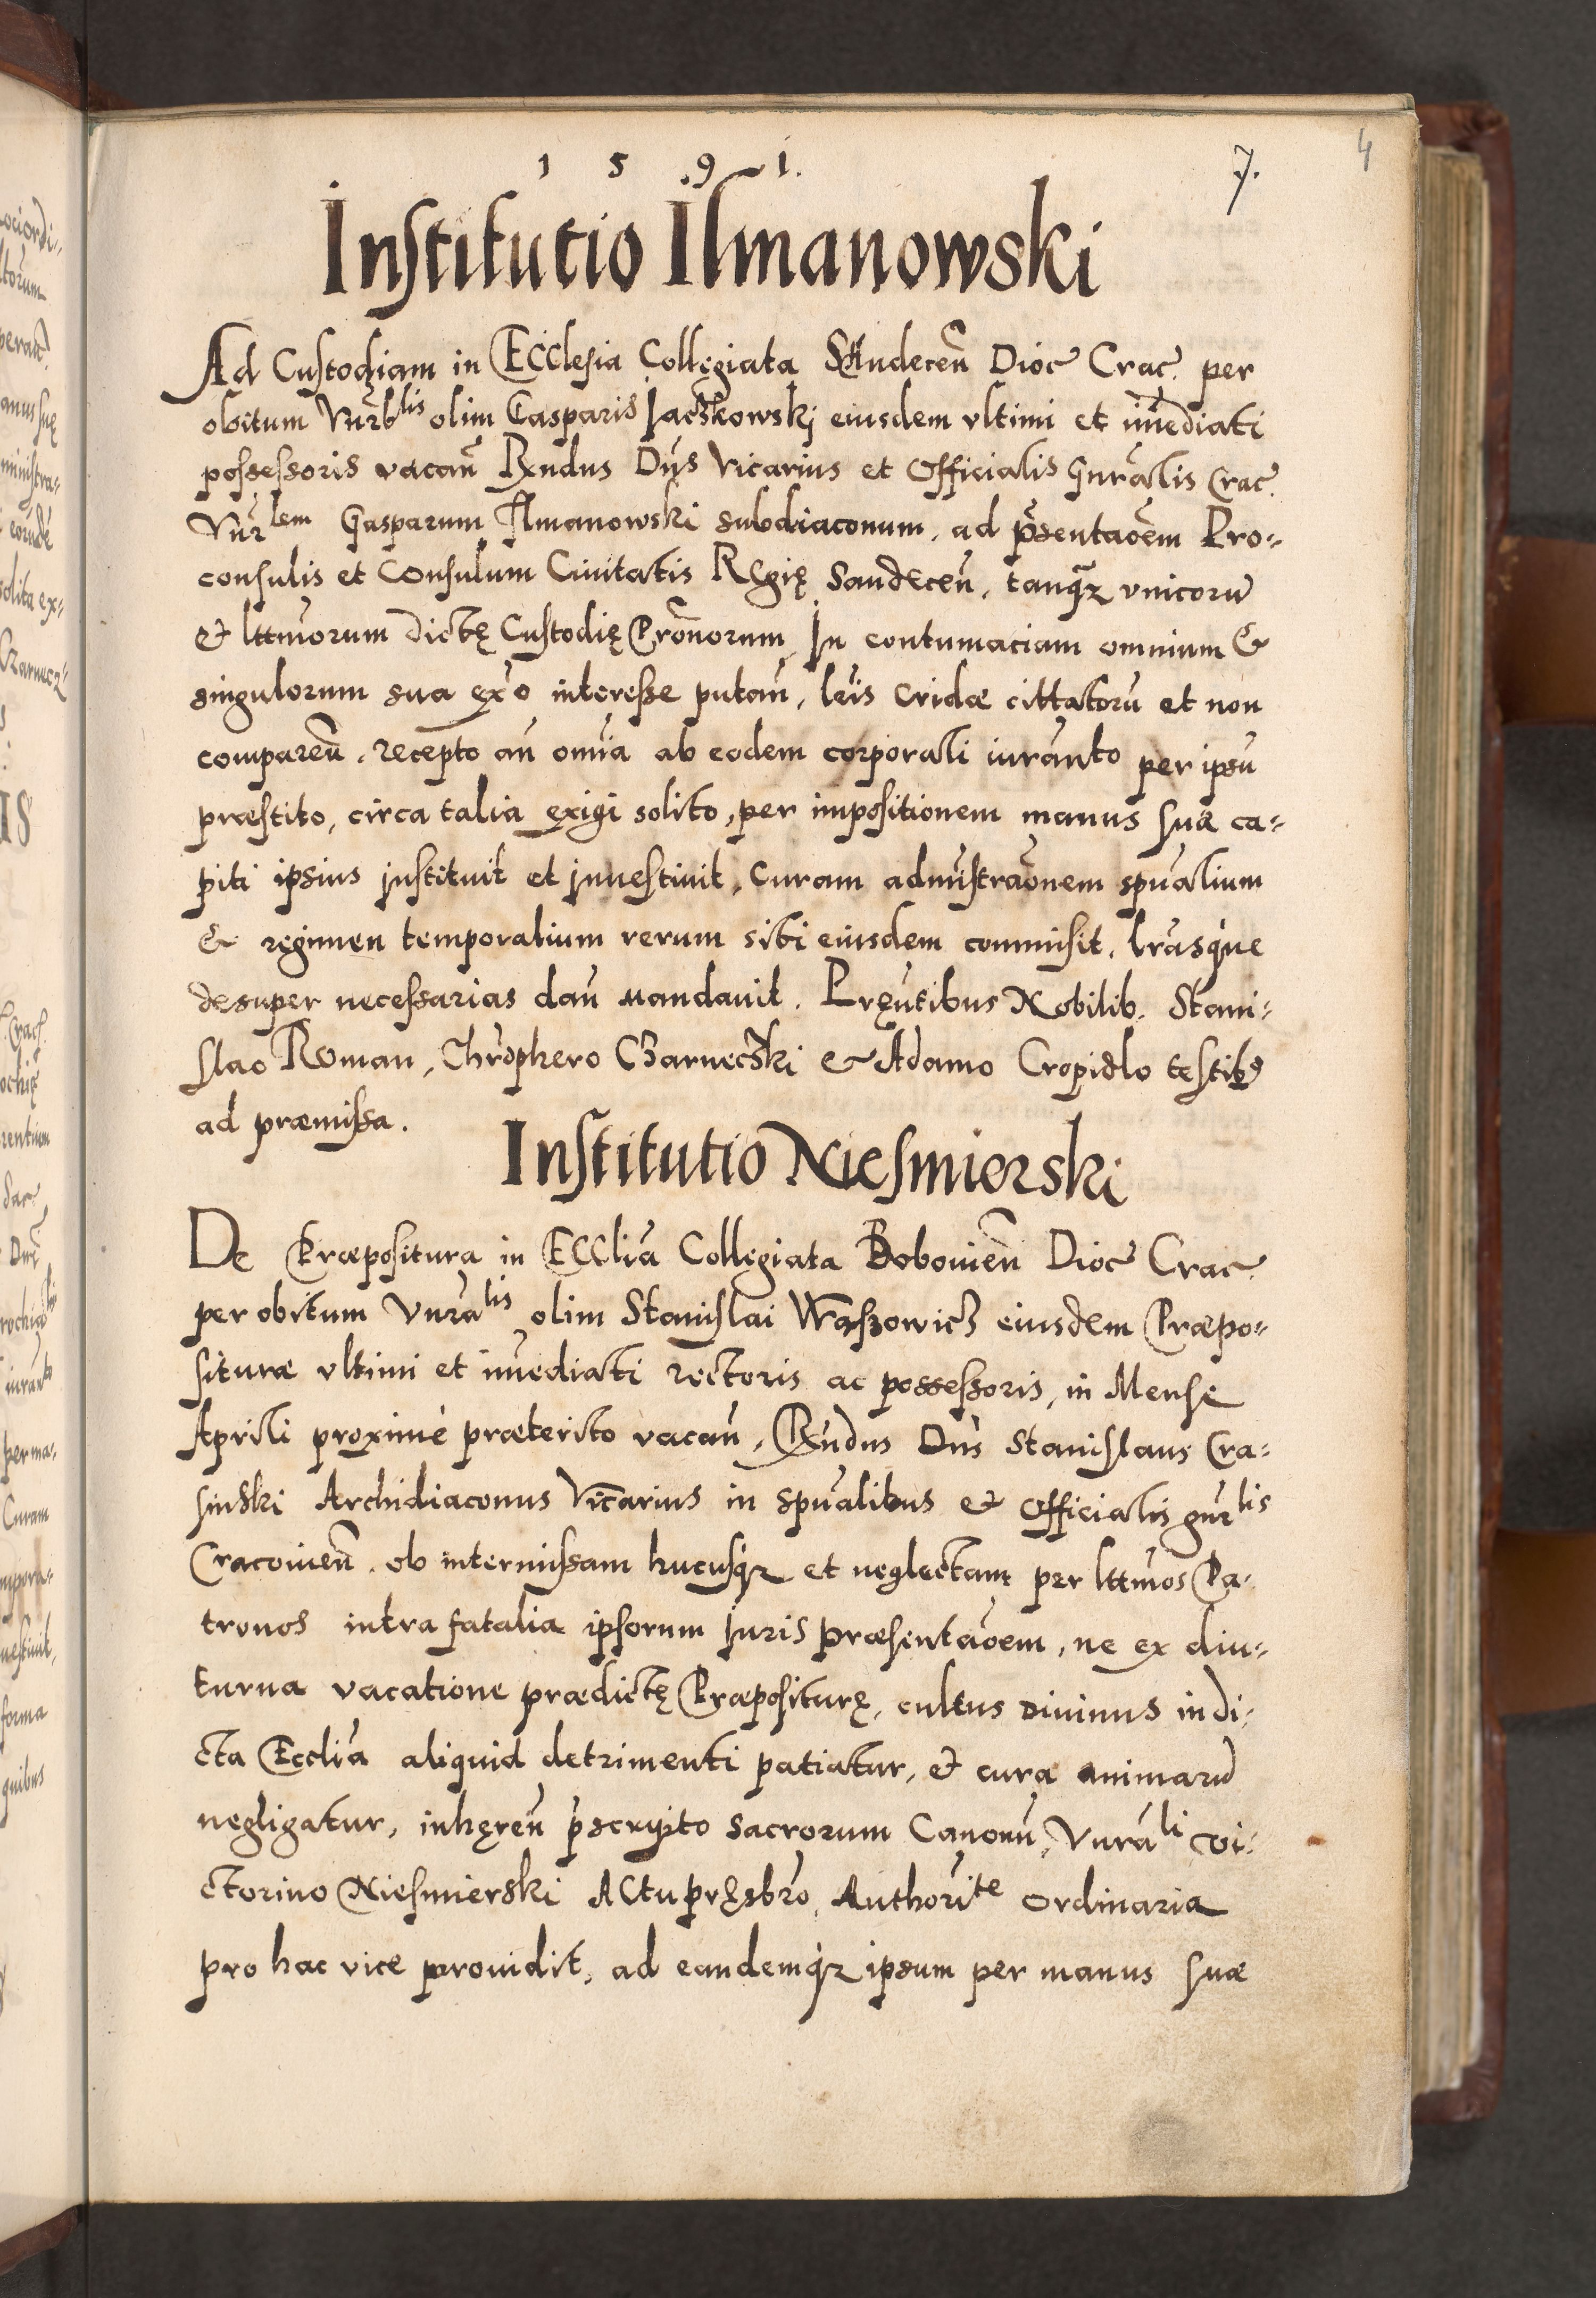 1 5 9 1.
7.
4
Institutio Ilmanowski
Ad Custodiam in Ecclesia Collegiata Sandecen̄ Dioc Crac. per
obitum Vnrb̄lis olim Casparis Jaczkowskj eiusdem vltimi et im̄ediati
possessoris vacan̄ Rxndus Dn̄s Vicarius et Officialis Gnrālis Crac.
Vnr̄lem Gasparum Ilmanowski subdiaconum, ad p̄sentaōem Pro-
consulis et Consulum Ciuitatis Regię Sandecen̄, tanq̄z vnicorū
& lttmorum dictę Custodię Pronorum, In contumaciam omnium &
singulorum sua exō interesse putan̄, lr̄is Cridæ cittatorū et non
comparen̄, recepto an̄ omīa ab eodem corporali iurān̄to per ipsū
præstito, circa talia exigi solito, per impositionem manus suæ ca-
piti ipsius jnstituit et jnuestiuit, Curam adm̄istraōnem spūalium
& regimen temporalium rerum sibi eiusdem commisit, lrāsque
desuper necessarias dan̄ mandauit. Pręntibus Nobilib. Stani-
slao Roman, Chrophero Czarneczki & Adamo Cropidlo testibꝫ
ad præmissa.
Institutio Niesmierski
De Præpositura in Ecclīa Collegiata Bobouien̄ Dioc Crac.
per obitum Vnrālis olim Stanislai Wraszowicz eiusdem Præpo-
situræ vltimi et im̄ediati rectoris ac possessoris, in Mense
Aprili proximè præterito vacan̄, Rxn̄dus Dn̄s Stanislaus Cra-
sinski Archidiaconus Vicarius in spūalibus & Officialis gnr̄lis
Cracouien̄. ob intermissam hucusq̄z et neglectam per lttmos Pa-
tronos intra fatalia ipsorum juris præsentaōem, ne ex diu-
turna vacatione prædictę Præpositurę, cultus diuinus in di-
cta Ecclīa aliquid detrimenti patiatur, & cura animarū
negligatur, inhęren̄ p̄scripto sacrorum Canonū, Vnrāli Vi-
ctorino Niesmierski Actu pręsbr̄o, Authorīte ordinaria
pro hac vice prouidit, ad eandemq̄z ipsum per manus suæ